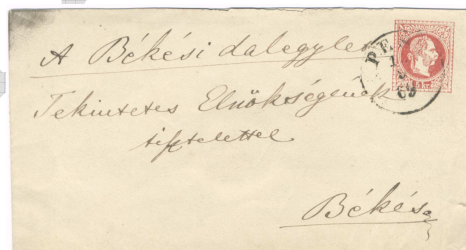 A Békési dalegyle
Tekintetes Elnökségének
tisztelettel
Békés
PES
5 Kr